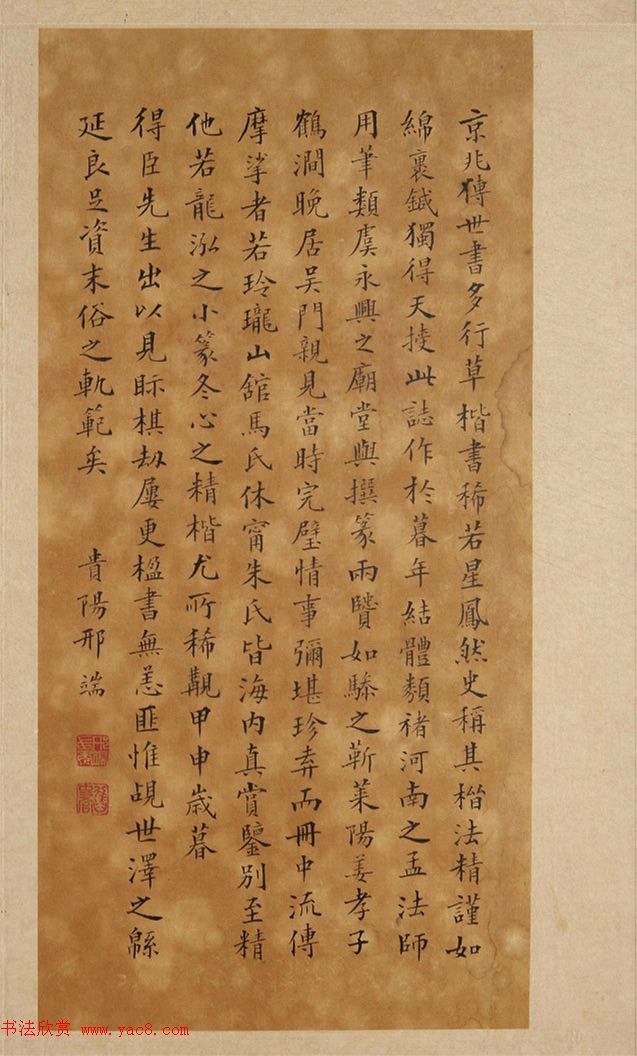 京兆傳世書多行草楷書稀若星鳳然史稱其楷法精謹如
綿裏鍼獨得天授此誌作於暮年結體類褚河南之孟法師
用筆類虞永興之廟堂與撰篆兩贙如驂之靳萊陽姜孝子
鶴澗晚居吴門親見當時完璧情事彌堪珍弆而冊中流傳
摩挲者若玲瓏山館馬氏休甯朱氏皆海内真賞鑒別至精
他若龍泓之小篆冬心之精楷尤所稀覯甲申歲暮
得臣先生出以見眎棋劫屢更楹書無恙匪惟覘世澤之緜
延良足資末俗之軌範矣 貴陽邢端
书法欣赏 www.yac8.com